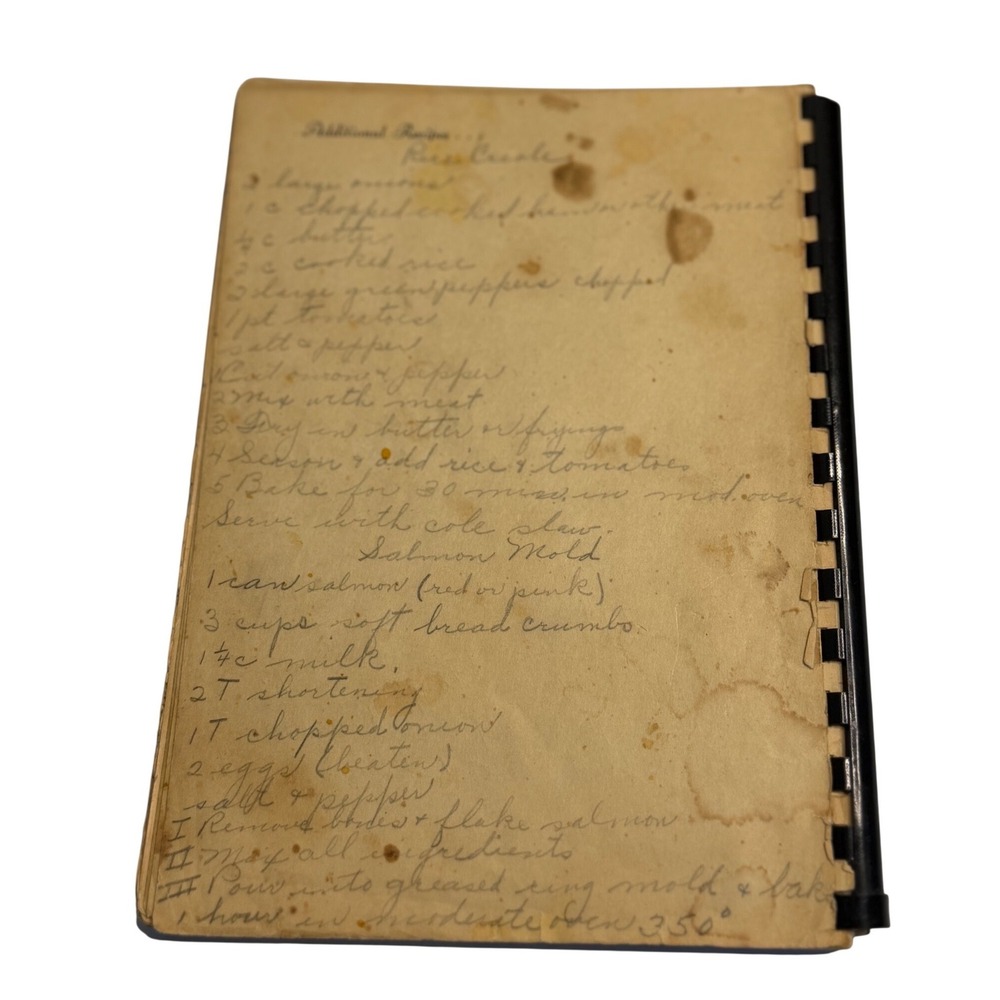 Additional Recipes . . .
Rice Creole
2 large onions
1 c chopped cooked ham or other meat
¼ c butter
2 c cooked rice
2 large green peppers chopped
1 pt tomatoes
salt & pepper
1 Cut onion & pepper
2 Mix with meat
3 Fry in butter or fryings
4 Season & add rice & tomatoes
5 Bake for 30 min. in mod. oven
Serve with cole slaw.
Salmon Mold
1 can salmon (red or pink)
3 cups soft bread crumbs
1 ¼ c milk.
2 T shortening
1 T chopped onion
2 eggs (beaten)
salt & pepper
I Remove bones & flake salmon
II Mix all ingredients
III Pour into greased ring mold & bake
1 hour in moderate oven 350°